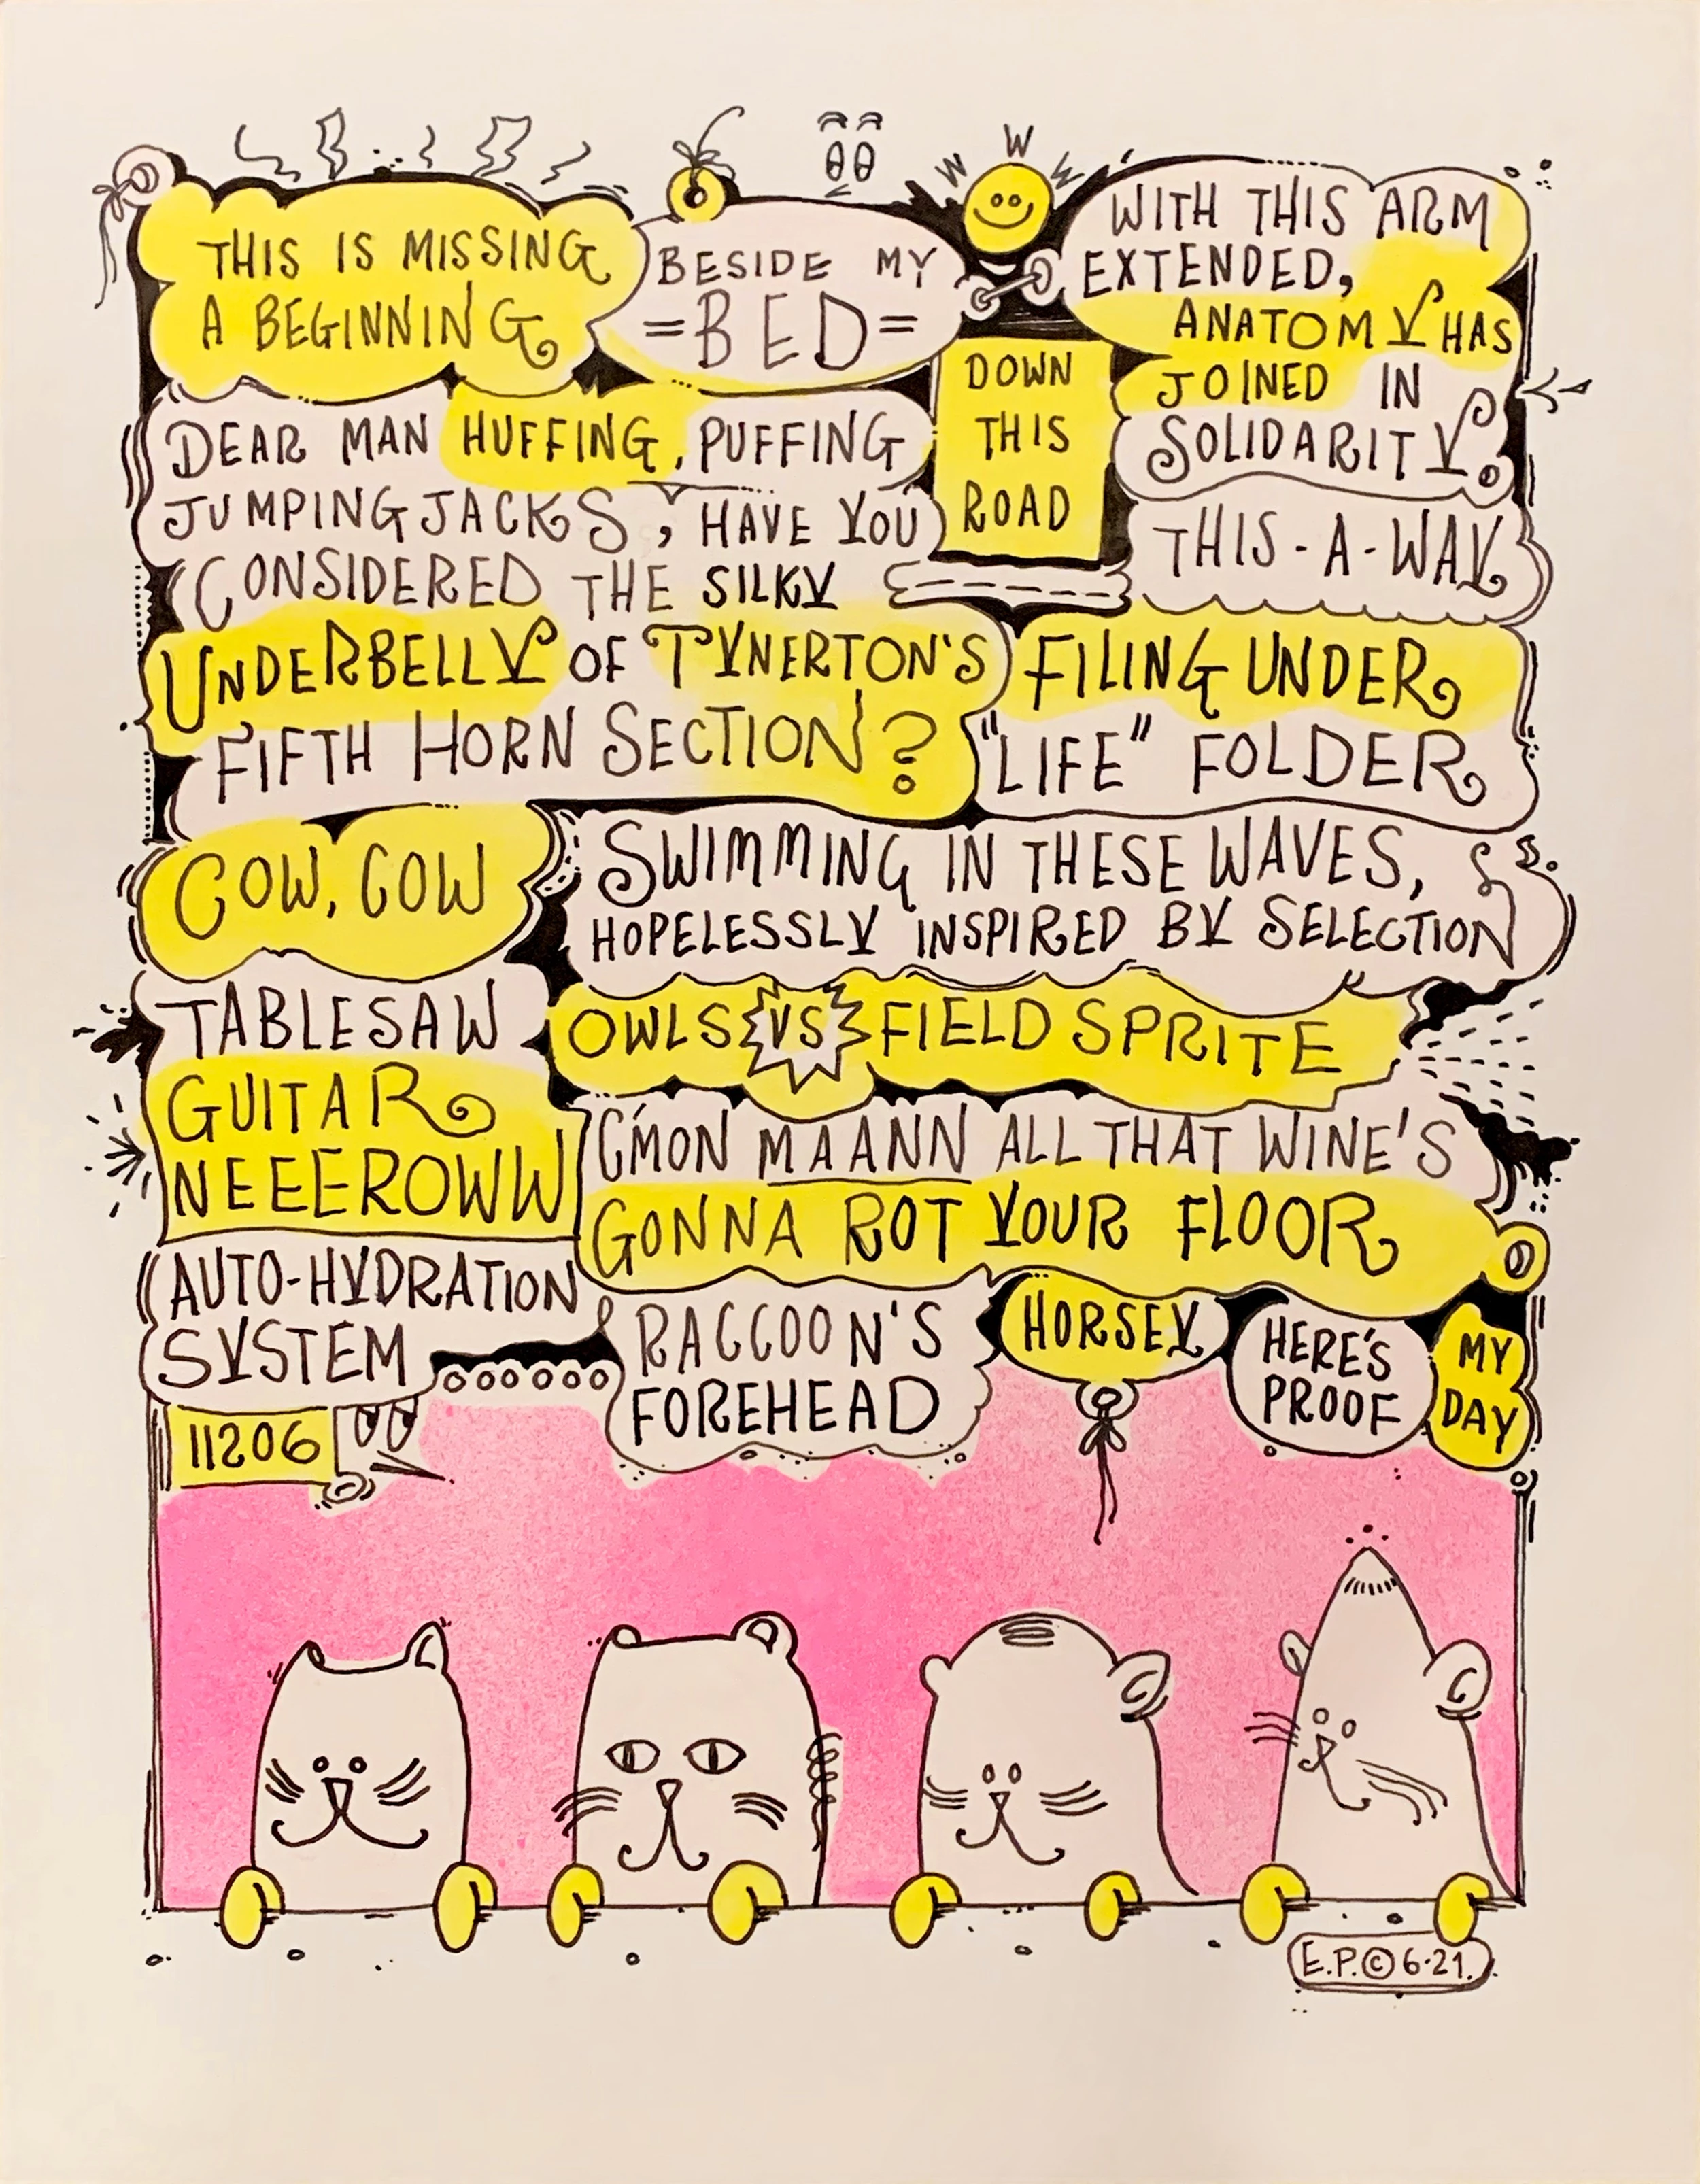 THIS IS MISSING
A BEGINNING
BESIDE MY
=BED=
W W W
WITH THIS ARM
EXTENDED,
ANATOMY HAS
JOINED IN
SOLIDARITY.
DOWN
THIS
ROAD
DEAR MAN HUFFING, PUFFING
JUMPING JACKS, HAVE YOU
CONSIDERED THE SILKY
UNDERBELLY OF TYNERTON'S
FIFTH HORN SECTION?
THIS-A-WAY
FILING UNDER
"LIFE" FOLDER
COW, COW
SWIMMING IN THESE WAVES,
HOPELESSLY INSPIRED BY SELECTION
TABLESAW
GUITAR
NEEEROWW
OWLS VS FIELD SPRITE
C'MON MAANN ALL THAT WINE'S
GONNA ROT YOUR FLOOR
AUTO-HYDRATION
SYSTEM
RACCOON'S
FOREHEAD
HORSEY
HERE'S
PROOF
MY
DAY
11206
E.P.©6·21.